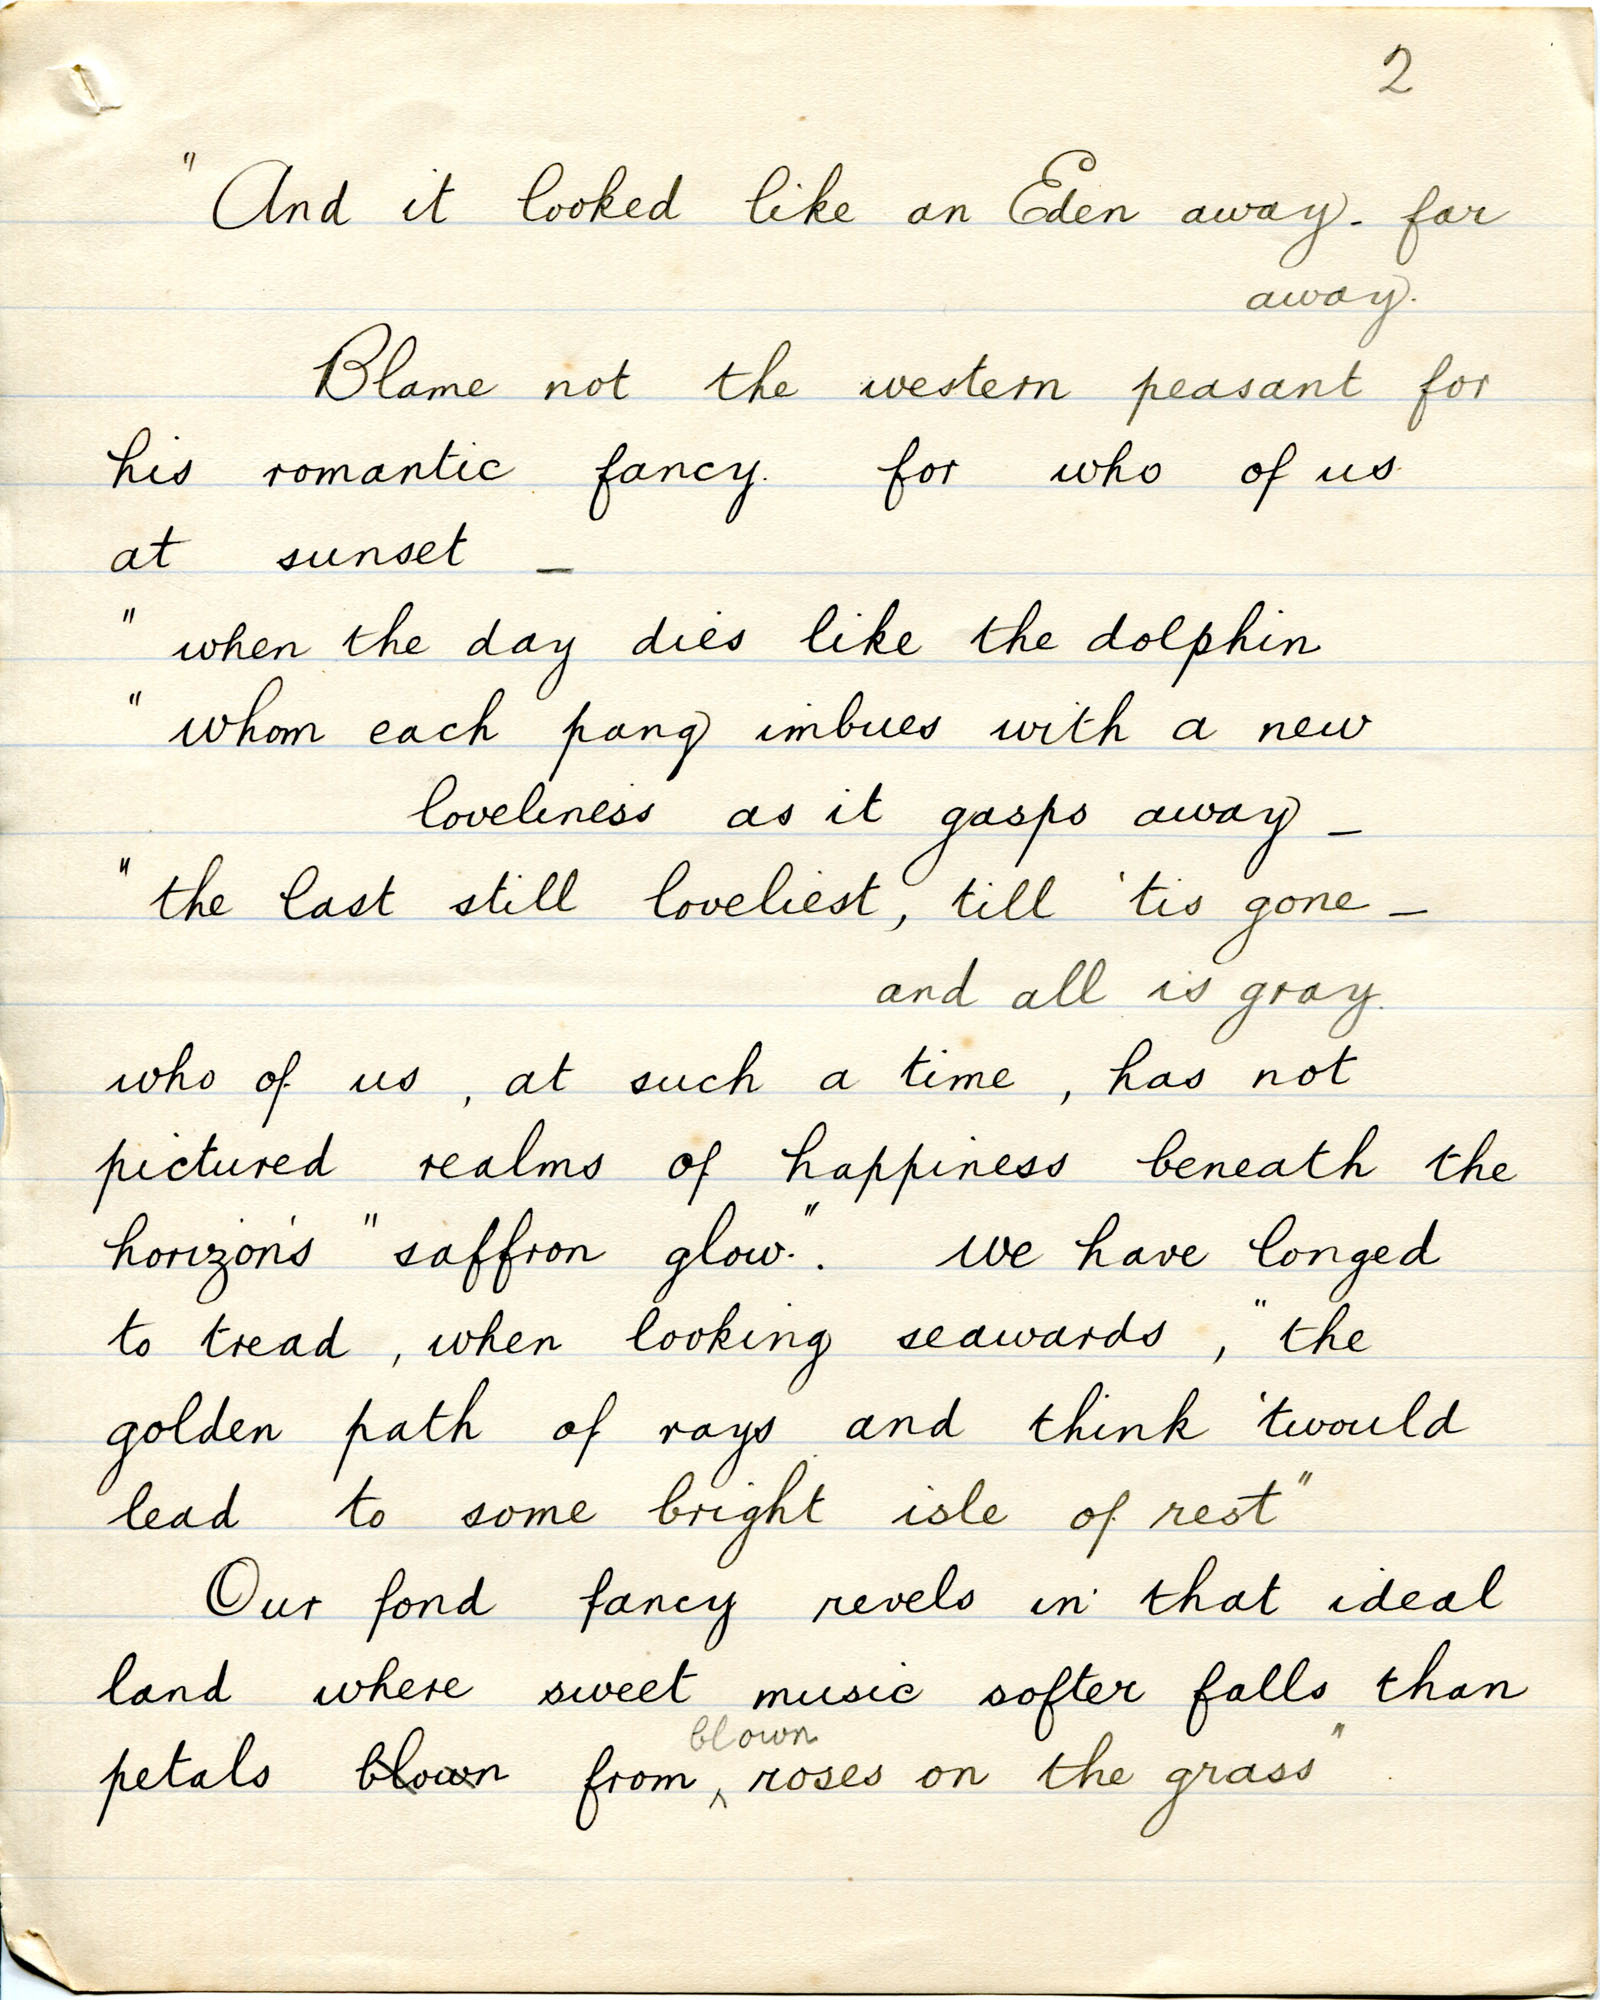 2
"And it looked like an Eden away - far
away.
Blame not the western peasant for
his romantic fancy. for who of us
at sunset –
" when the day dies like the dolphin
" whom each pang imbues with a new
loveliness as it gasps away –
" the last still loveliest, till 'tis gone –
and all is gray.
who of us, at such a time, has not
pictured realms of happiness beneath the
horizon's "saffron glow.". We have longed
to tread, when looking seawards, "the
golden path of rays and think 'twould
lead to some bright isle of rest"
Our fond fancy revels in that ideal
land where sweet music softer falls than
blown
petals blown from ^ roses on the grass".